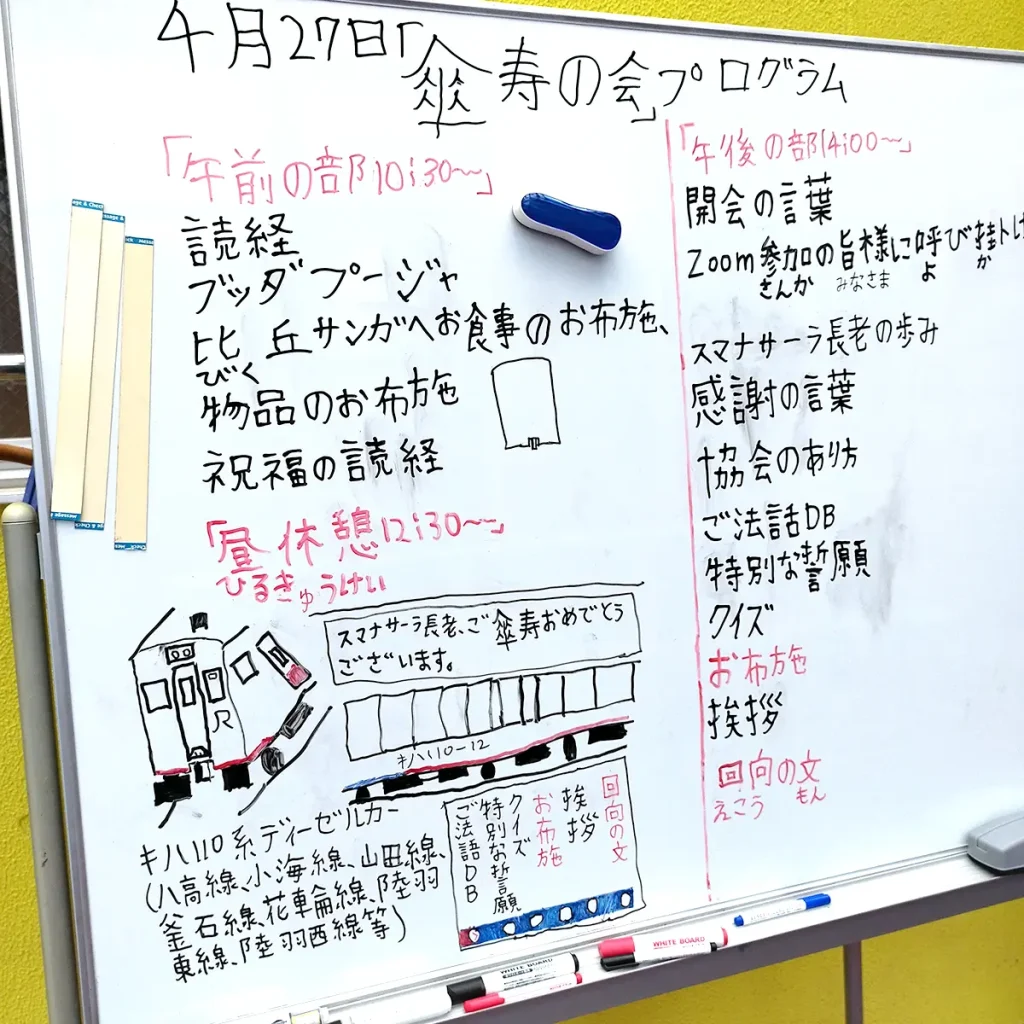 4月27日「傘寿の会」プログラム
「午前の部10:30〜」
読経
ブッダプージャ
比丘サンガへお食事のお布施、
びく
物品のお布施
祝福の読経
「昼休憩12:30〜」
ひるきゅうけい
スマナサーラ長老、ご傘寿おめでとう
ございます。
JR
キハ110-12
キハ110系ディーゼルカー
(八高線、小海線、山田線、
釜石線、花輪線、陸羽
東線、陸羽西線等)
回向の文
挨拶
お布施
クイズ
特別な誓願
ご法話DB
「午後の部14:00〜」
開会の言葉
Zoom参加の皆様に呼び掛け
さんか みなさま よ か
スマナサーラ長老の歩み
感謝の言葉
協会のあり方
ご法話DB
特別な誓願
クイズ
お布施
挨拶
回向の文
えこう もん
WHITE BOARD
WHITE BOARD